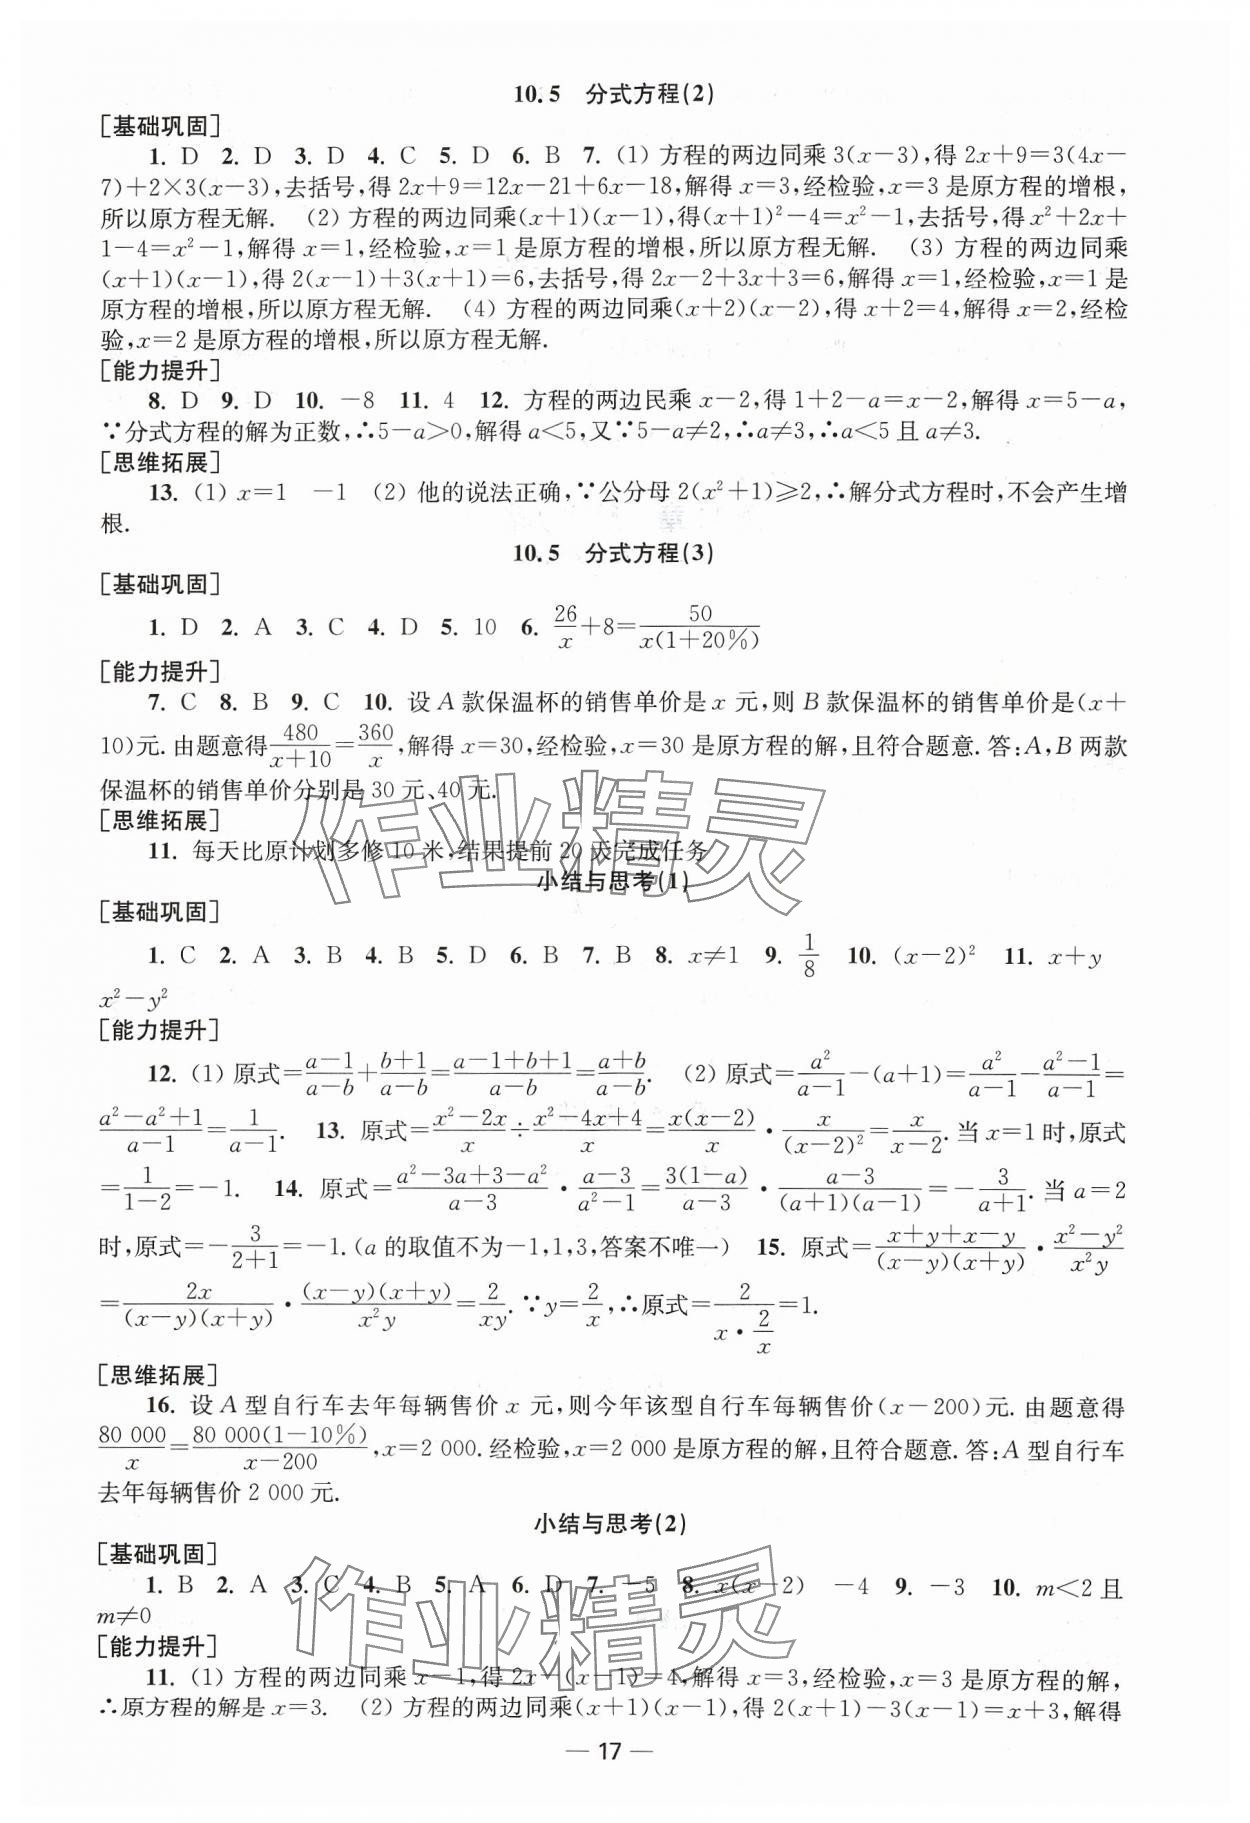 10.5　分式方程(2)
[基础巩固]
1. D 2. D 3. D 4. C 5. D 6. B 7. (1) 方程的两边同乘 3(x－3),得 2x＋9＝3(4x－
7)＋2×3(x－3),去括号,得 2x＋9＝12x－21＋6x－18,解得 x＝3,经检验,x＝3 是原方程的增根,
所以原方程无解. (2) 方程的两边同乘(x＋1)(x－1),得(x＋1)²－4＝x²－1,去括号,得 x²＋2x＋
1－4＝x²－1,解得 x＝1,经检验,x＝1 是原方程的增根,所以原方程无解. (3) 方程的两边同乘
(x＋1)(x－1),得 2(x－1)＋3(x＋1)＝6,去括号,得 2x－2＋3x＋3＝6,解得 x＝1,经检验,x＝1 是
原方程的增根,所以原方程无解. (4) 方程的两边同乘(x＋2)(x－2),得 x＋2＝4,解得 x＝2,经检
验,x＝2 是原方程的增根,所以原方程无解.
[能力提升]
8. D 9. D 10. －8 11. 4 12. 方程的两边民乘 x－2,得 1＋2－a＝x－2,解得 x＝5－a,
∵分式方程的解为正数,∴5－a＞0,解得 a＜5,又∵5－a≠2,∴a≠3,∴a＜5 且 a≠3.
[思维拓展]
13. (1) x＝1　－1 (2) 他的说法正确,∵公分母 2(x²＋1)≥2,∴解分式方程时,不会产生增
根.
10.5　分式方程(3)
[基础巩固]
1. D 2. A 3. C 4. D 5. 10 6. 26/x＋8＝50/x(1＋20%)
[能力提升]
7. C 8. B 9. C 10. 设 A 款保温杯的销售单价是 x 元,则 B 款保温杯的销售单价是(x＋
10)元.由题意得480/(x＋10)＝360/x,解得 x＝30,经检验,x＝30 是原方程的解,且符合题意.答:A,B 两款
保温杯的销售单价分别是 30 元、40 元.
[思维拓展]
11. 每天比原计划多修 10 米,结果提前 20 天完成任务
小结与思考(1)
[基础巩固]
1. C 2. A 3. B 4. B 5. D 6. B 7. B 8. x≠1 9. 1/8 10. (x－2)² 11. x＋y
x²－y²
[能力提升]
12. (1) 原式＝(a－1)/(a－b)＋(b＋1)/(a－b)＝(a－1＋b＋1)/(a－b)＝(a＋b)/(a－b). (2) 原式＝a²/(a－1)－(a＋1)＝a²/(a－1)－(a²－1)/(a－1)＝
(a²－a²＋1)/(a－1)＝1/(a－1). 13. 原式＝(x²－2x)/x÷(x²－4x＋4)/x＝x(x－2)/x·x/(x－2)²＝x/(x－2).当 x＝1 时,原式
＝1/(1－2)＝－1. 14. 原式＝(a²－3a＋3－a²)/(a－3)·(a－3)/(a²－1)＝3(1－a)/(a－3)·(a－3)/(a＋1)(a－1)＝－3/(a＋1).当 a＝2
时,原式＝－3/(2＋1)＝－1.(a 的取值不为－1,1,3,答案不唯一) 15. 原式＝(x＋y＋x－y)/(x－y)(x＋y)·(x²－y²)/x²y
＝2x/(x－y)(x＋y)·(x－y)(x＋y)/x²y＝2/xy.∵y＝2/x,∴原式＝2/(x·2/x)＝1.
[思维拓展]
16. 设 A 型自行车去年每辆售价 x 元,则今年该型自行车每辆售价(x－200)元.由题意得
80 000/x＝80 000(1－10%)/(x－200),x＝2 000.经检验,x＝2 000 是原方程的解,且符合题意.答:A 型自行车
去年每辆售价 2 000 元.
小结与思考(2)
[基础巩固]
1. B 2. A 3. C 4. B 5. A 6. D 7. －5 8. x(x－2)　－4 9. －3 10. m＜2 且
m≠0
[能力提升]
11. (1) 方程的两边同乘 x－1,得 2x－(x－1)＝4,解得 x＝3,经检验,x＝3 是原方程的解,
∴原方程的解是 x＝3. (2) 方程的两边同乘(x＋1)(x－1),得 2(x＋1)－3(x－1)＝x＋3,解得
— 17 —
作业精灵
作业精灵